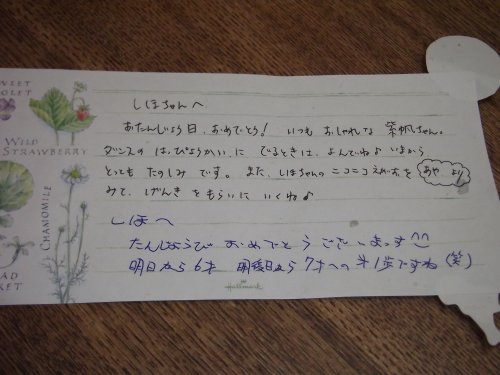 しほちゃんへ
おたんじょう日、おめでとう! いつも おしゃれな 紫帆ちゃん。
ダンスの はっぴょうかい に でるときは、よんでね♪ いまから
とっても たのしみ です。また、しほちゃんの ニコニコ えがおを
みて、げんき を もらいに いくね♪
あや より
しほへ
たんじょうび おめでとうございまっす^^
明日から 6才 明後日から 7才への 第1歩ですね (笑)
Hallmark
SWEET
VIOLET
WILD
STRAWBERRY
CHAMOMILE